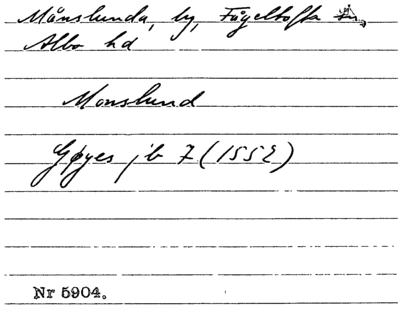 Månslunda, by, Fågeltofta
Albo hd
Monslund
Gøyes jb 7 (1552)
Nr 5904.